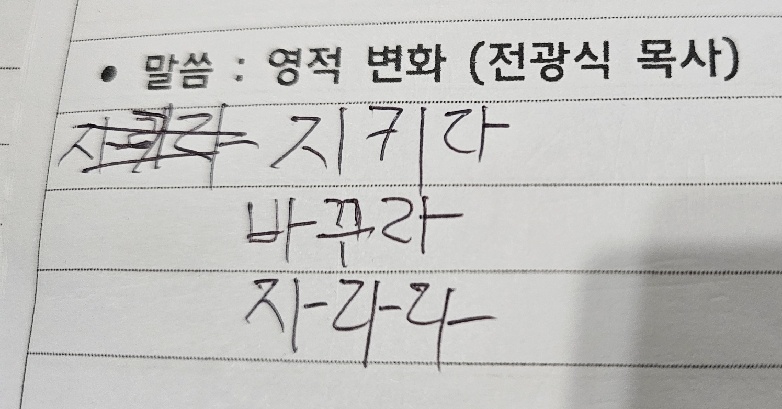 • 말씀 : 영적 변화 (전광식 목사)
지키라
바꾸라
자라라